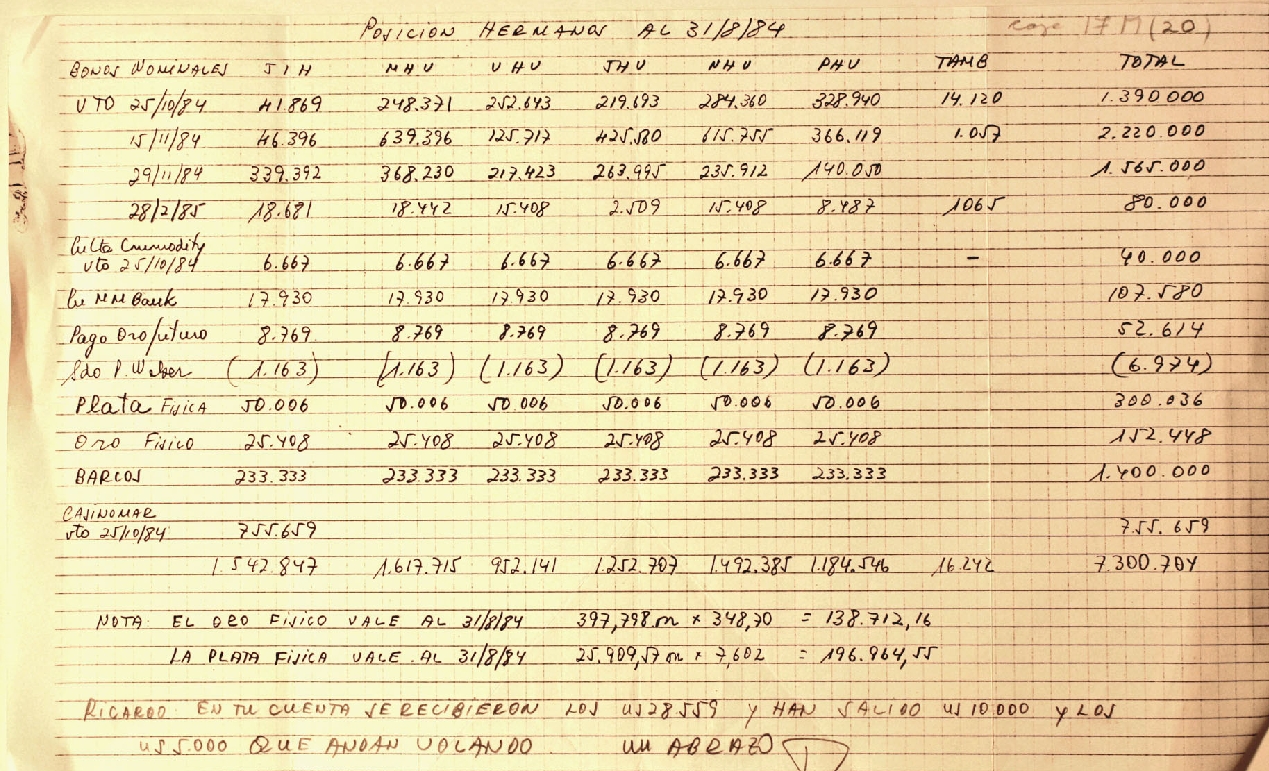 POSICION HERMANOS AL 31/8/84 caja 17 M (20)
BONOS NOMINALES JIH MHU UHU JHU NHU PHU TAMB TOTAL
VTO 25/10/84 41.869 248.371 252.643 219.693 284.360 328.940 14.120 1.390.000
15/11/84 46.396 639.396 125.717 615.755 366.119 1.057 2.220.000
29/11/84 339.392 368.230 217.423 263.995 235.912 140.050 1.565.000
28/2/85 18.681 18.442 15.408 2.509 15.408 8.487 1065 80.000
Commodity
vto 25/10/84 6.667 6.667 6.667 6.667 6.667 6.667 - 40.000
MM Bank 17.930 17.930 17.930 17.930 17.930 17.930 107.580
Pago Oro/futuro 8.769 8.769 8.769 8.769 8.769 8.769 52.614
Sdo P. (1.163) (1.163) (1.163) (1.163) (1.163) (1.163) (6.974)
Plata FISICA 50.006 50.006 50.006 50.006 50.006 50.006 300.036
Oro FISICO 25.408 25.408 25.408 25.408 25.408 25.408 152.448
BARCOS 233.333 233.333 233.333 233.333 233.333 233.333 1.400.000
CASINOMAR
vto 25/10/84 755.659 755.659
1.542.847 1.617.715 952.141 1.252.707 1.492.385 1.184.546 16.242 7.300.704
NOTA: EL ORO FISICO VALE AL 31/8/84 397,798 × 348,70 = 138.712,16
LA PLATA FISICA VALE AL 31/8/84 25.909,57 × 7,602 = 196.964,55
RICARDO: EN TU CUENTA SE RECIBIERON LOS u$s 28559 Y HAN SALIDO u$s 10.000 Y LOS
u$s 5.000 QUE ANDAN VOLANDO. UN ABRAZO